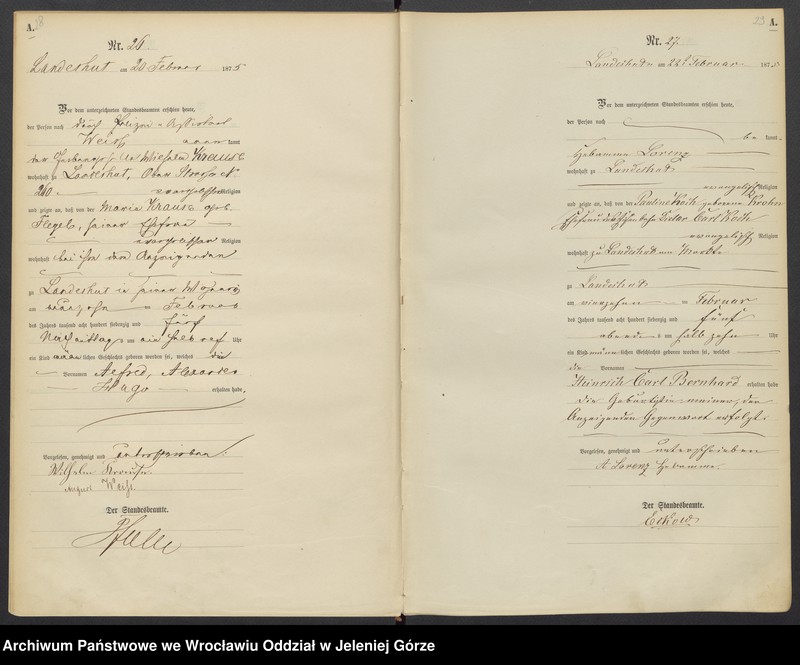 A.
28
Nr. 26.
Landeshut am 20 Februar 1875
Vor dem unterzeichneten Standesbeamten erschien heute,
der Person nach durch Polizei
Weiss kannt
Wilhelm Krause
wohnhaft zu Landeshut, Ober Strasse No
260 evangelischer Religion
und zeigte an, daß von der Maria Krause geb.
Flegel, seiner Ehefrau
evangelischer Religion
wohnhaft bei ihm dem Anzeigenden
zu Landeshut in seiner Wohnung
am Februar
des Jahres tausend acht hundert siebenzig und fünf
Nachmittags um ein halb Uhr
ein Kind männlichen Geschlechts geboren worden sei, welches die
Vornamen Alfred, Alexander
Hugo erhalten habe.
Vorgelesen, genehmigt und unterschrieben.
Wilhelm Krause.
August Weiss.
Der Standesbeamte.
29
A.
Nr. 27.
Landeshut am 22t Februar 1875
Vor dem unterzeichneten Standesbeamten erschien heute,
der Person nach
be kannt,
Hebamme Lorenz
wohnhaft zu Landeshut
evangelisch Religion
und zeigte an, daß von der Pauline Koth geborene Krohn
Ehefrau des Carl Koth
evangelisch Religion
wohnhaft zu Landeshut am Markte
zu Landeshut
am vierzehn ten Februar
des Jahres tausend acht hundert siebenzig und fünf
abends um halb zehn Uhr
ein Kind männlichen Geschlechts geboren worden sei, welches
die Vornamen
Heinrich Carl Bernhard erhalten habe
die Geburt in meiner, der
Anzeigenden Gegenwart erfolgt.
Vorgelesen, genehmigt und unterschrieben
A Lorenz Hebamme.
Der Standesbeamte.
Archiwum Państwowe we Wrocławiu Oddział w Jeleniej Górze